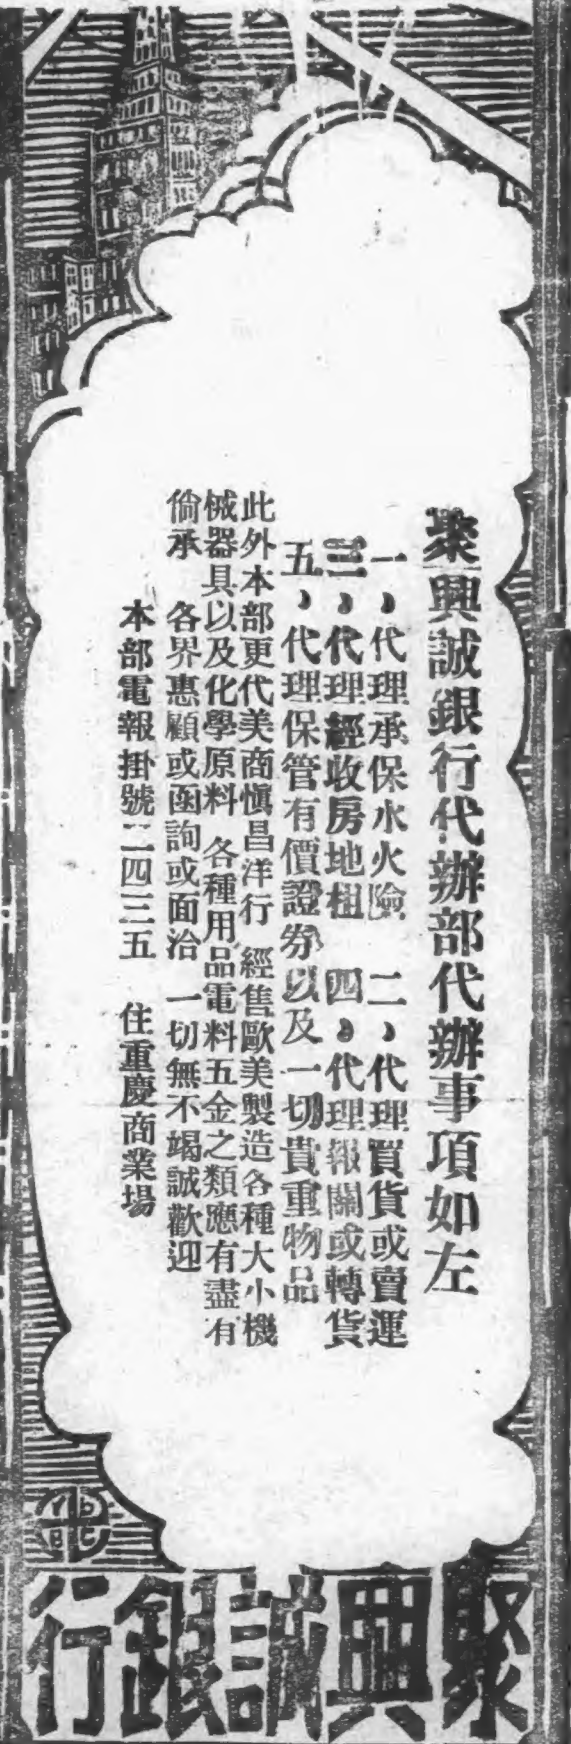 聚興誠銀行代辦部代辦事項如左
一、代理承保水火險　二、代理買貨或賣運
三、代理經收房地租　四、代理報關或轉貨
五、代理保管有價證券以及一切貴重物品
此外本部更代美商愼昌洋行　經售歐美製造各種大小機
械器具以及化學原料　各種用品電料五金之類應有盡有
倘承　各界惠顧或函詢或面洽　一切無不竭誠歡迎
本部電報掛號二四三五　住重慶商業場
聚興誠銀行